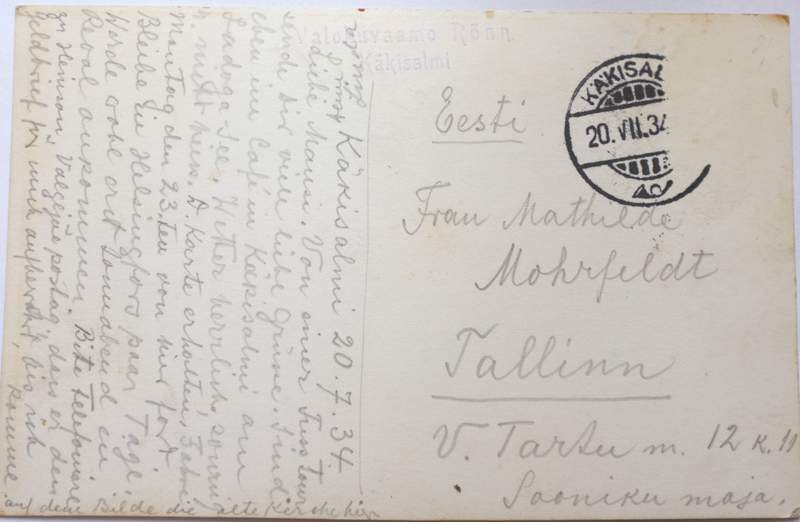 Käkisalmi 20.7.34
Liebe Mausi. Von einer Fuss tour
sende dir viele liebe Grüsse. Sind
eben im Café in Käkisalmi am
Ladoga See. Wetter herrlich, sonnig,
nicht heiss. D. Karte erhalten. Fahre
Montag den 23.ten von hier fort
Bleibe in Helsingfors paar Tage.
Werde wohl erst Sonnabend in
Reval ankommen. Bitte telefoniere
zu Heinson, Valgejõe postag. dass er den
Geldbrief für mich aufbewahrt bis ich
komme.
auf dem Bilde die alte Kirche hier
Valokuvaamo Rönn
Käkisalmi
KÄKISAL
20.VII.34
Eesti
Frau Mathilde
Mohrfeldt
Tallinn
V. Tartu m. 12 K. 11
Sooniku maja.